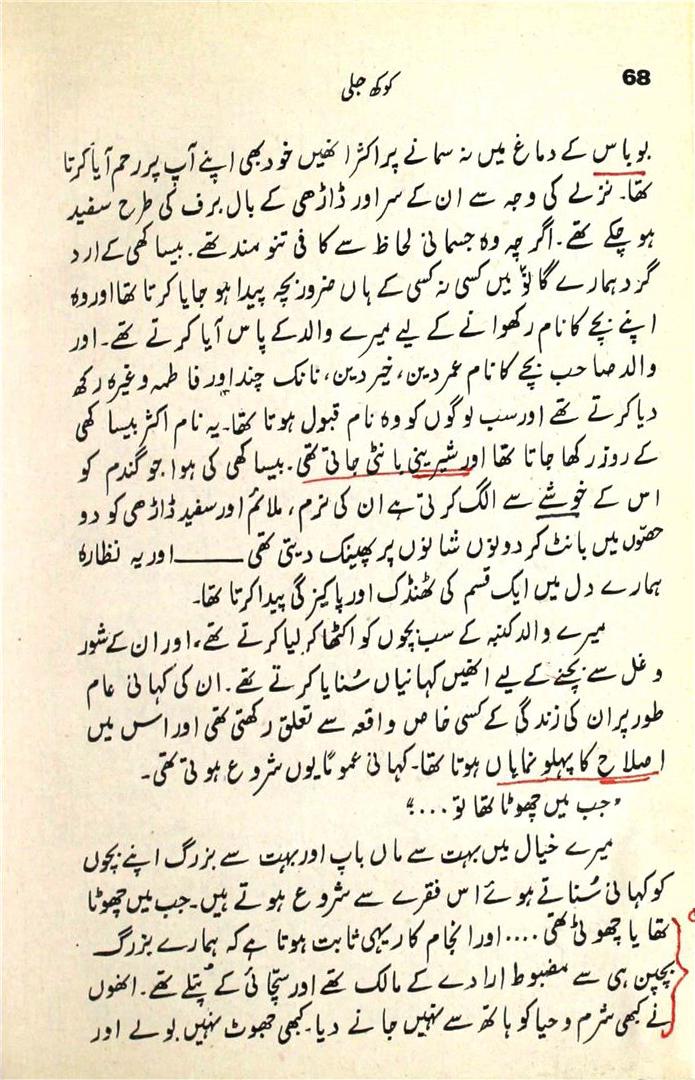 68
کوکھ جلی
بو باس کے دماغ میں نہ سمانے پر اکثر انھیں خود بھی اپنے آپ پر رحم آیا کرتا
تھا۔ نزلے کی وجہ سے ان کے سر اور ڈاڑھی کے بال برف کی طرح سفید
ہو چکے تھے۔ اگر چہ وہ جسمانی لحاظ سے کافی تنومند تھے۔ بیساکھی کے ارد
گرد ہمارے گاؤں میں کسی نہ کسی کے ہاں ضرور بچہ پیدا ہو جایا کرتا تھا اور وہ
اپنے بچے کا نام رکھوانے کے لیے میرے والد کے پاس آیا کرتے تھے۔ اور
والد صاحب بچے کا نام عمر دین، خیر دین، نانک چند اور فاطمہ وغیرہ رکھ
دیا کرتے تھے اور سب لوگوں کو وہ نام قبول ہوتا تھا۔ یہ نام اکثر بیساکھی
کے روز رکھا جاتا تھا اور شیرینی بانٹی جاتی تھی۔ بیساکھی کی ہوا جو گندم کو
اس کے خوشے سے الگ کرتی ہے ان کی نرم، ملائم اور سفید ڈاڑھی کو دو
حصّوں میں بانٹ کر دونوں شانوں پر پھینک دیتی تھی ـــــ اور یہ نظارہ
ہمارے دل میں ایک قسم کی ٹھنڈک اور پاکیزگی پیدا کرتا تھا۔
میرے والد کنبہ کے سب بچوں کو اکٹھا کر لیا کرتے تھے، اور ان کے شور
و غل سے بچنے کے لیے انھیں کہانیاں سُنایا کرتے تھے۔ ان کی کہانی عام
طور پر ان کی زندگی کے کسی خاص واقعہ سے تعلق رکھتی تھی اور اس میں
اصلاح کا پہلو نمایاں ہوتا تھا۔ کہانی عموماً یوں شروع ہوتی تھی۔
”جب میں چھوٹا تھا تو....“
میرے خیال میں بہت سے ماں باپ اور بہت سے بزرگ اپنے بچوں
کو کہانی سُناتے ہوئے اس فقرے سے شروع ہوتے ہیں۔ جب میں چھوٹا
تھا یا چھوٹی تھی .... اور انجام کار یہی ثابت ہوتا ہے کہ ہمارے بزرگ
بچپن ہی سے مضبوط ارادے کے مالک تھے اور سچّائی کے پُتلے تھے۔ انھوں
نے کبھی شرم و حیا کو ہاتھ سے نہیں جانے دیا۔ کبھی جھوٹ نہیں بولے اور